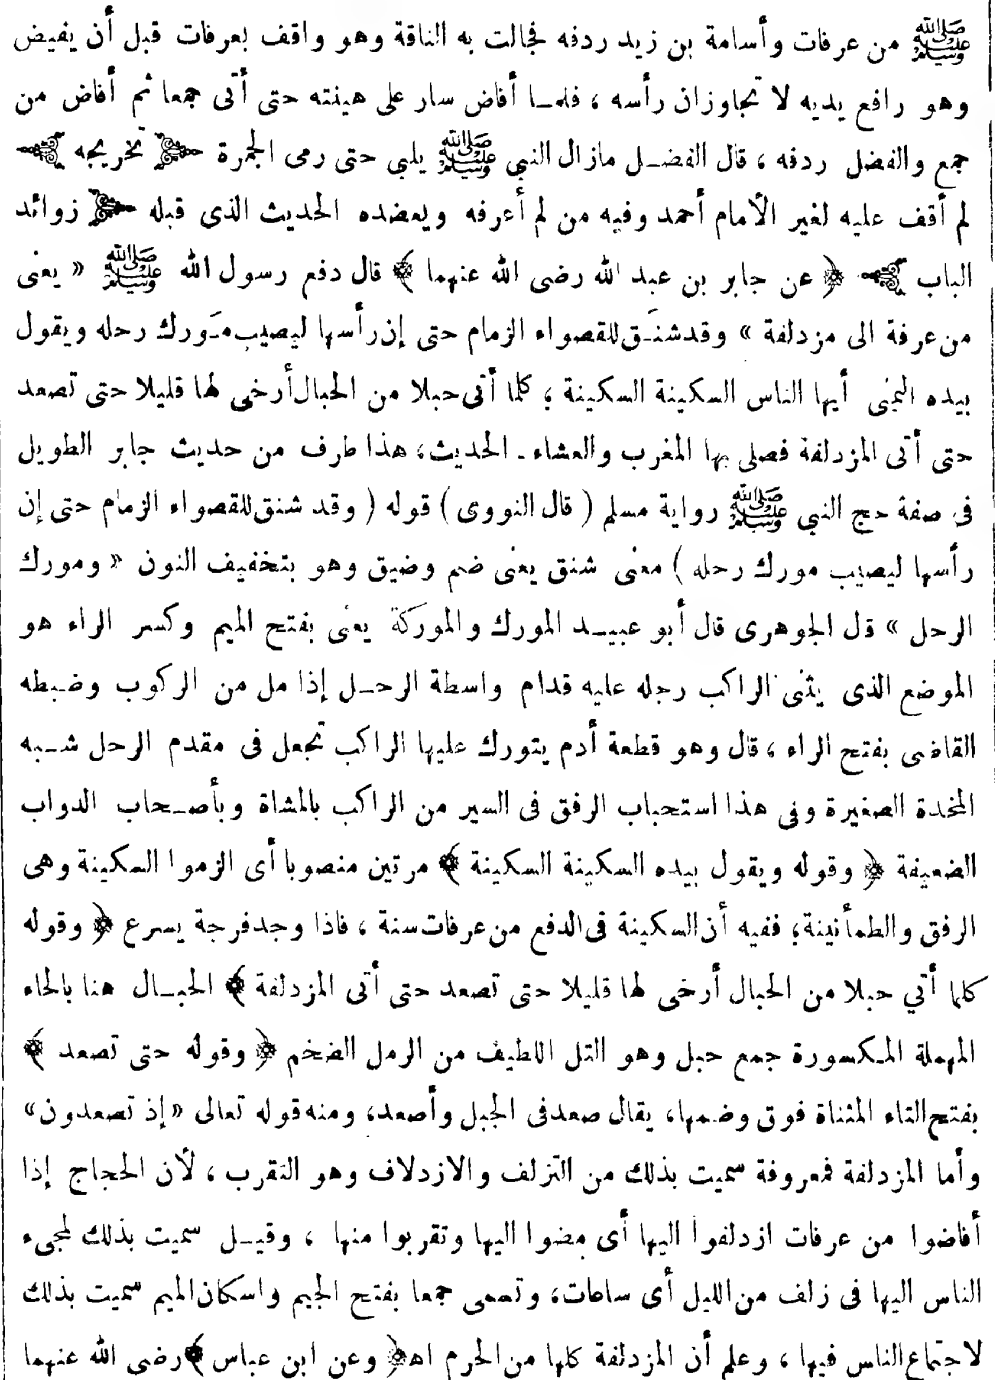 ﷺ من عرفات وأسامة بن زيد ردفه فجالت به الناقة وهو واقف بعرفات قبل أن يفيض
وهو رافع يديه لا تجاوزان رأسه ، فلمـا أفاض سار على هينته حتى أتى جمعا ثم أفاض من
جمع والفضل ردفه ، قال الفضـل مازال النبي ﷺ يلبي حتى رمى الجمرة ﴿ تخريجه ﴾
لم أقف عليه لغير الأمام أحمد وفيه من لم أعرفه ويعضده الحديث الذى قبله ﴿ زوائد
الباب ﴾ ﴿ عن جابر بن عبد الله رضى الله عنهما ﴾ قال دفع رسول الله ﷺ « يعنى
من عرفة الى مزدلفة » وقد شنَـق للقصواء الزمام حتى إن رأسها ليصيب مَـورك رحله ويقول
بيده اليمنى أيها الناس السكينة السكينة ؛ كلما أتى حبلا من الحبال أرخى لها قليلا حتى تصعد
حتى أتى المزدلفة فصلى بها المغرب والعشاء ـ الحديث، هذا طرف من حديث جابر الطويل
فى صفة حج النبي ﷺ رواية مسلم ( قال النووى ) قوله ( وقد شنق للقصواء الزمام حتى إن
رأسها ليصيب مورك رحله ) معنى شنق يعنى ضم وضيق وهو بتخفيف النون « ومورك
الرحل » قال الجوهرى قال أبو عبيـد المورك والموركة يعنى بفتح الميم وكسر الراء هو
الموضع الذى يثنى الراكب رجله عليه قدام واسطة الرحـل إذا مل من الركوب وضـبطه
القاضى بفتح الراء ، قال وهو قطعة أدم يتورك عليها الراكب تجعل فى مقدم الرحل شـبه
المخدة الصغيرة وفى هذا استحباب الرفق فى السير من الراكب بالمشاة وبأصـحاب الدواب
الضعيفة ﴿ وقوله ويقول بيده السكينة السكينة ﴾ مرتين منصوبا أى الزموا السكينة وهى
الرفق والطمأنينة؛ ففيه أن السكينة فى الدفع من عرفات سنة ، فاذا وجد فرجة يسرع ﴿ وقوله
كلما أتي حبلا من الحبال أرخى لها قليلا حتى تصعد حتى أتى المزدلفة ﴾ الحبـال هنا بالحاء
المهملة المكسورة جمع حبل وهو التل اللطيف من الرمل الضخم ﴿ وقوله حتى تصعد ﴾
بفتح التاء المثناة فوق وضمها، يقال صعد فى الجبل وأصعد، ومنه قوله تعالى «إذ تصعدون»
وأما المزدلفة فمعروفة سميت بذلك من التزلف والازدلاف وهو التقرب ، لأن الحجاج إذا
أفاضوا من عرفات ازدلفوا اليها أى مضوا اليها وتقربوا منها ، وقيـل سميت بذلك لمجىء
الناس اليها فى زلف من الليل أى ساعات، وتسمى جمعا بفتح الجيم واسكان الميم سميت بذلك
لاجتماع الناس فيها ، وعلم أن المزدلفة كلها من الحرم اهـ ﴿ وعن ابن عباس ﴾ رضى الله عنهما